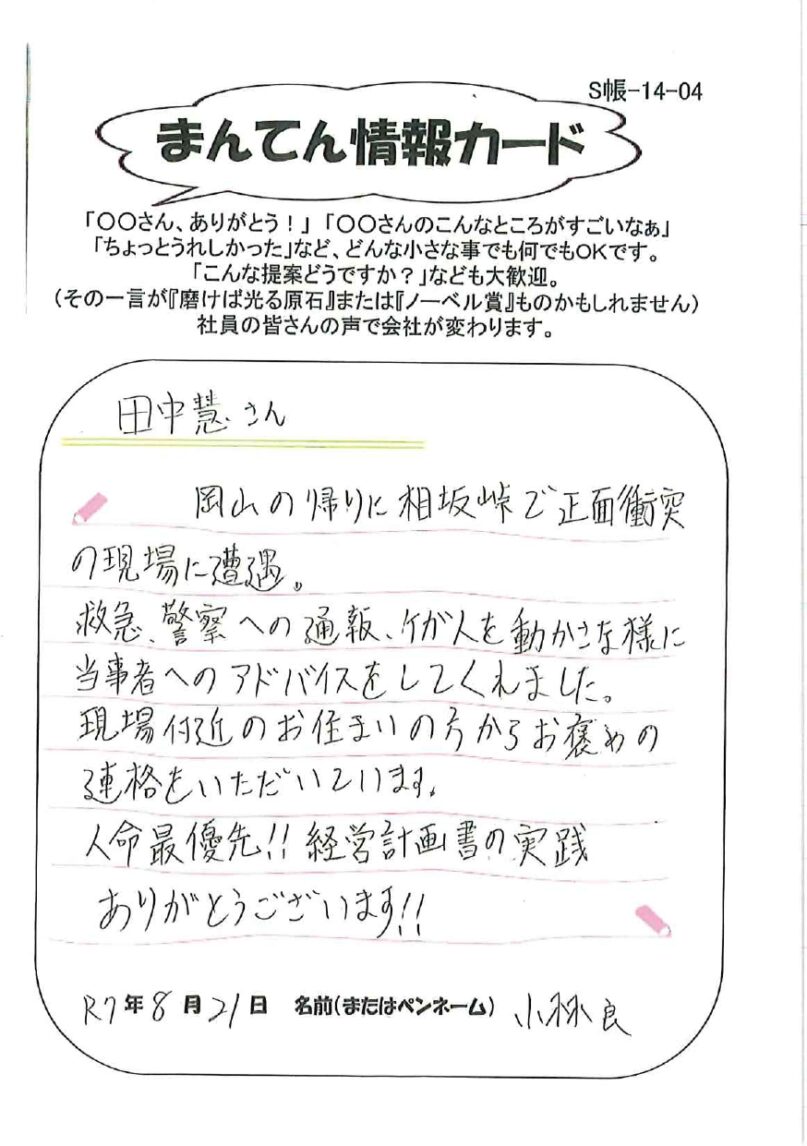 S帳-14-04
まんてん情報カード
「〇〇さん、ありがとう！」「〇〇さんのこんなところがすごいなぁ」
「ちょっとうれしかった」など、どんな小さな事でも何でもOKです。
「こんな提案どうですか？」なども大歓迎。
(その一言が『磨けば光る原石』または『ノーベル賞』ものかもしれません)
社員の皆さんの声で会社が変わります。
田中慧さん
岡山の帰りに相坂峠で正面衝突
の現場に遭遇。
救急、警察への通報、ケガ人を動かさな様に
当事者へのアドバイスをしてくれました。
現場付近のお住まいの方からお褒めの
連格をいただいています。
人命最優先!! 経営計画書の実践
ありがとうございます!!
R7年8月21日 名前(またはペンネーム) 小林良